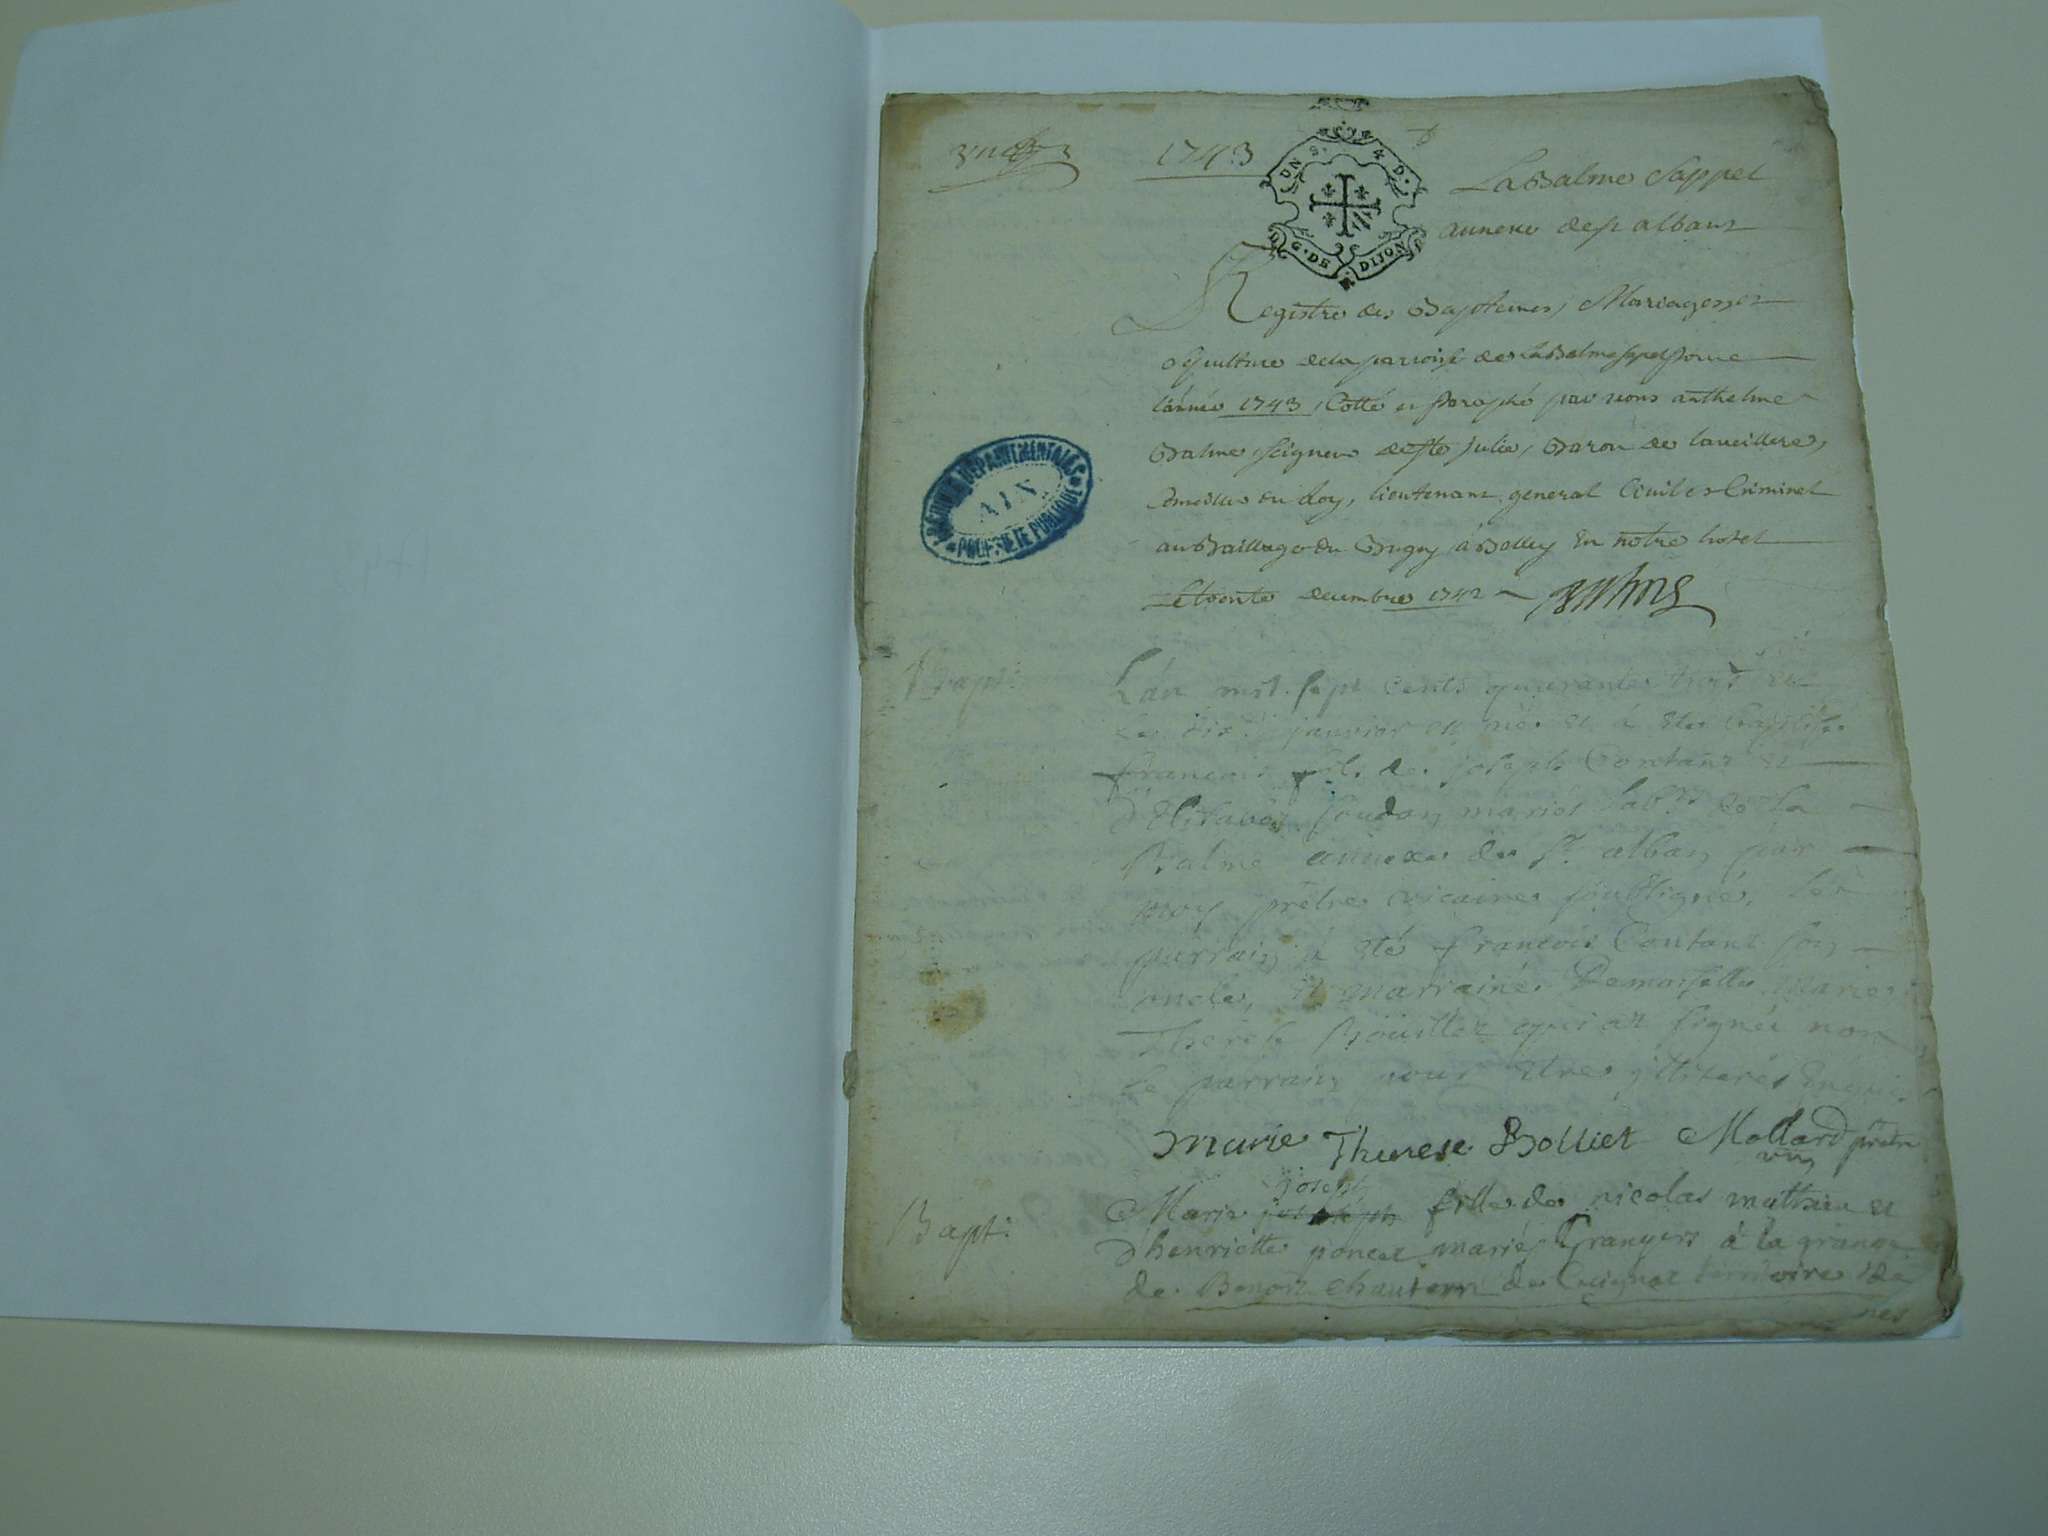 1743
UN S. 4 D.
G. DE DIJON
La Balme Sappel
annexe de st albans
Registre des Baptemes, Mariages et
sepulture de la parroisse de La Balme sapel pour
l'année 1743, Cotté et Paraphé par nous anthelme
Balme seigneur de ste Julie, Baron de
Conseiller du Roy, lieutenant general Civil et Criminel
au Bailliage du Bugey à Belley En notre hotel
Le trente decembre 1742
ARCHIVES DEPARTEMENTALES
AIN
PROPRIETE PUBLIQUE
Bapt:
L'an mil sept cents quarante trois et
le dix janvier est née et à été baptisé
françois fils de joseph Contant et
d'Elisabet mariés lab.rs de la
Balme annexe de st. alban par
moy prêtre vicaire soubsigné, le
parrain à été françois Contant son
oncle, et marraine Demoiselle Marie
Therese Boullet qui at signée non
le parrain pour être illiteré enquis
Marie Therese Bolliet Mollard prêtre
vic
Bapt:
joseph
Marie joseph fille de nicolas mathieu et
d'henriette poncet mariés Grangers à la grange
de Benoit chautem de Cuignet territoire de